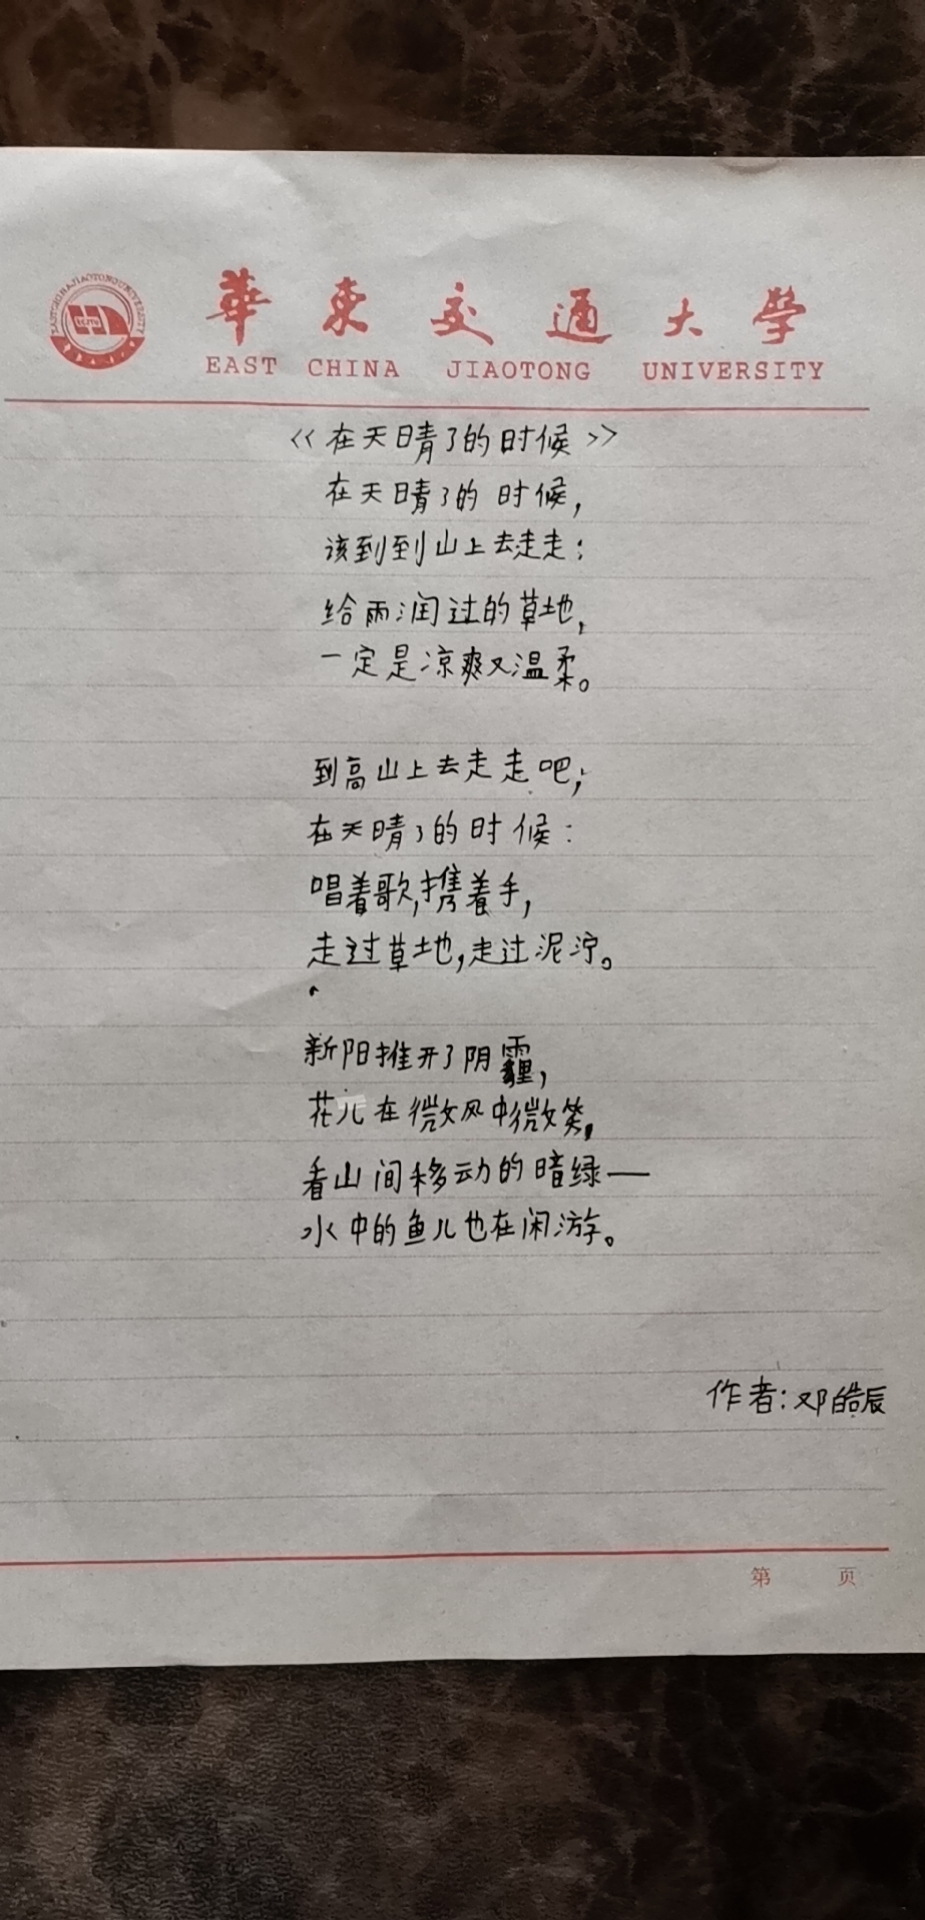 華東交通大學
EAST CHINA JIAOTONG UNIVERSITY
《在天晴了的时候》
在天晴了的时候，
该到到山上去走走：
给雨润过的草地，
一定是凉爽又温柔。
到高山上去走走吧；
在天晴了的时候：
唱着歌，携着手，
走过草地，走过泥泞。
新阳推开了阴霾，
花儿在微风中微笑，
看山间移动的暗绿——
水中的鱼儿也在闲游。
作者：邓皓辰
第 页